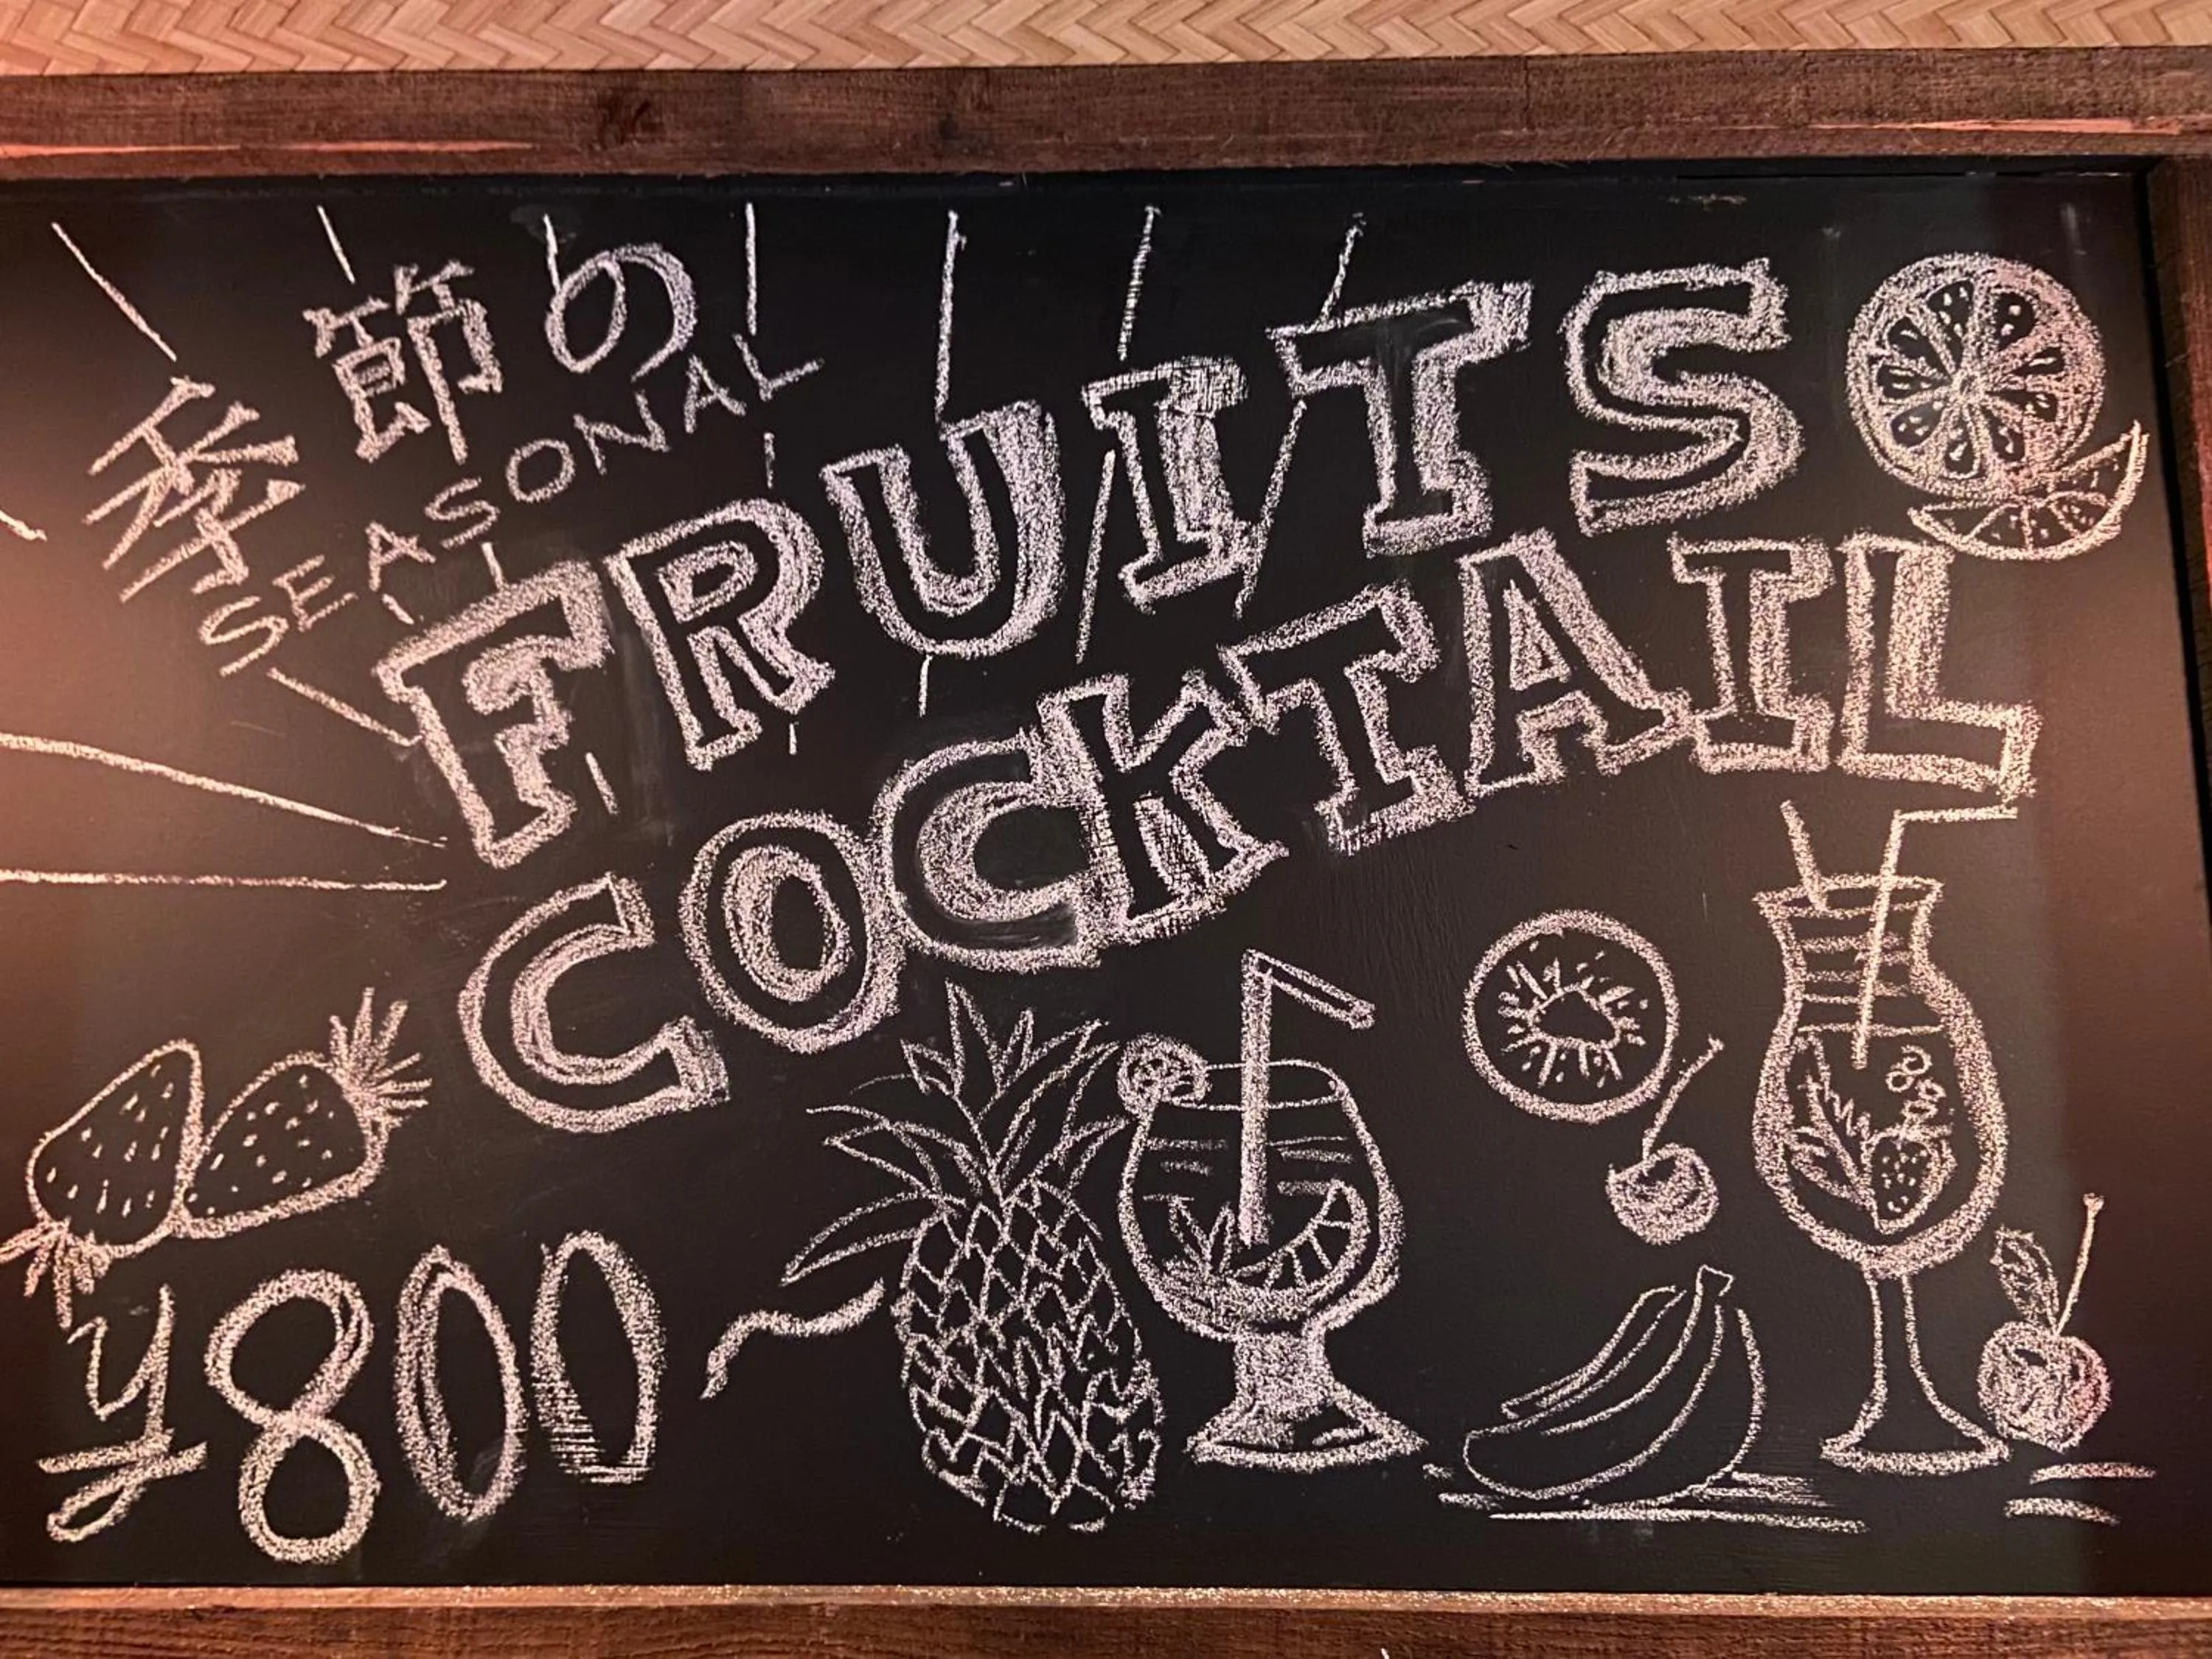 季節の
SEASONAL
FRUITS
COCKTAIL
¥800~